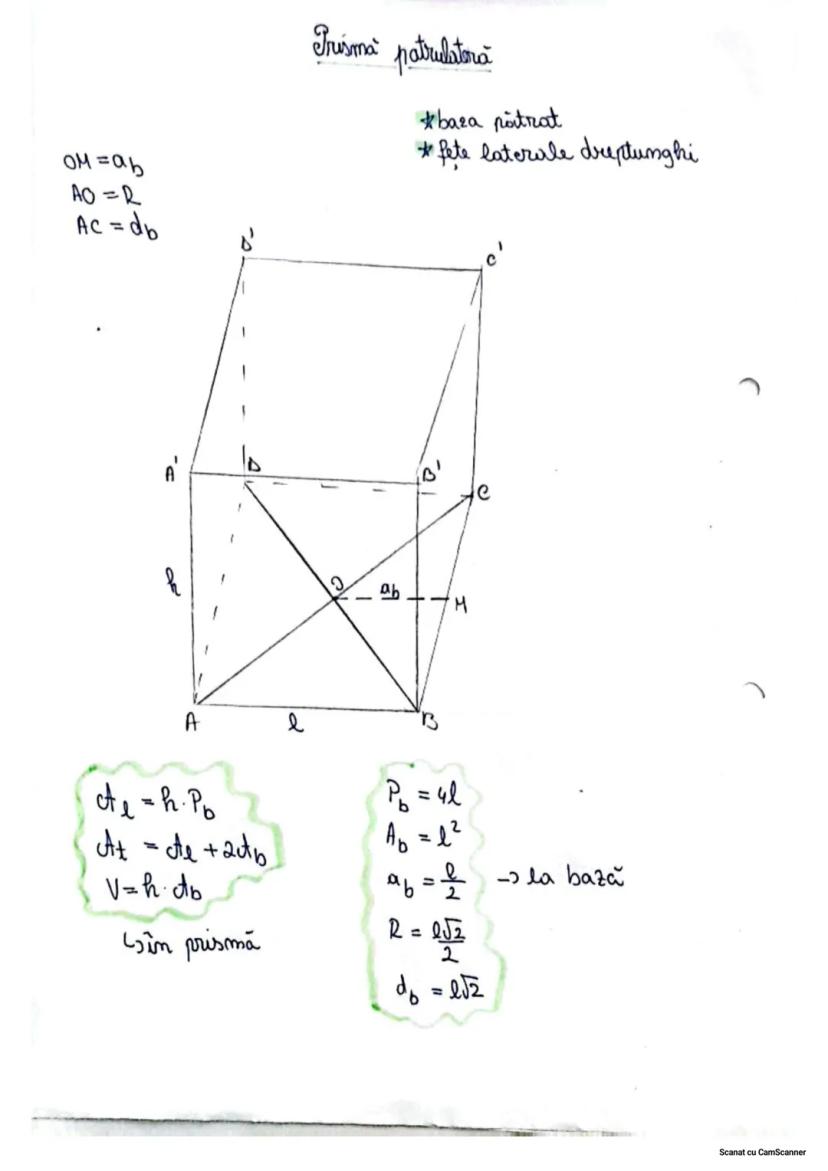 Prismă patrulateră
*baza pătrat
*fețe laterale dreptunghi
OM = ab
AO = R
AC = db
D'
C'
A'
D
B'
C
h
O
ab
M
A
l
B
Al = h · Pb
At = Al + 2Ab
V = h · Ab
↳ în prismă
Pb = 4l
Ab = l²
ab = l/2 → la bază
R = l√2/2
db = l√2
Scanat cu CamScanner